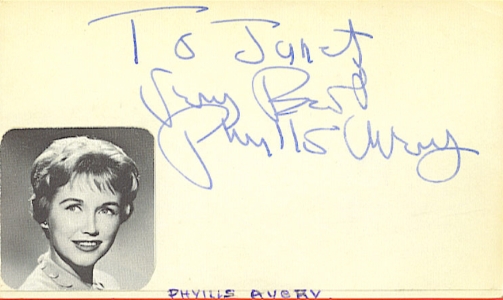 To Janet
Very Best
Phyllis Avery
PHYLLIS AVERY